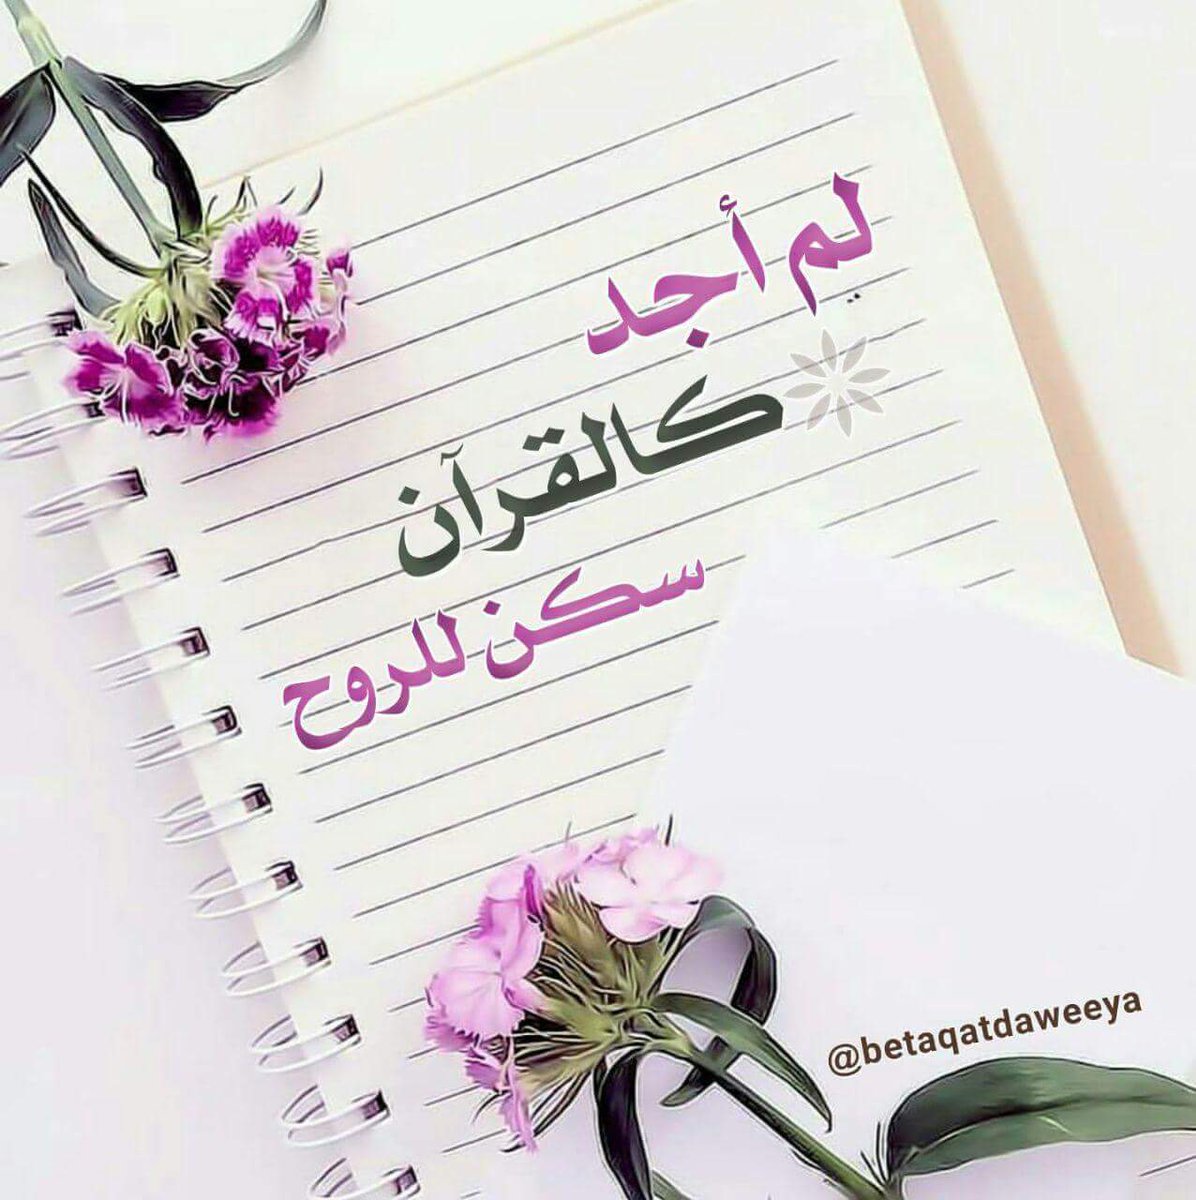 لم أجد
كالقرآن
سكن للروح
@betaqatdaweeya